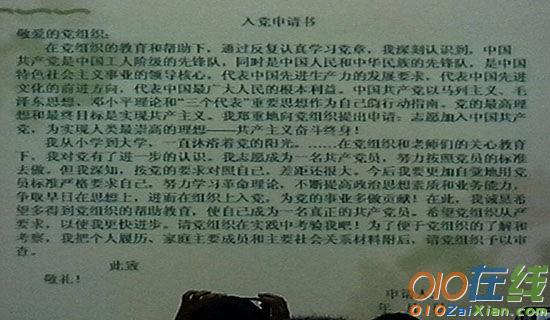 入党申请书
敬爱的党组织：
在党组织的教育和帮助下，通过反复认真学习党章，我深刻认识到，中国
共产党是中国工人阶级的先锋队，同时是中国人民和中华民族的先锋队，是中国
特色社会主义事业的领导核心，代表中国先进生产力的发展要求，代表中国先进
文化的前进方向，代表中国最广大人民的根本利益。中国共产党以马列主义、毛
泽东思想、邓小平理论和“三个代表”重要思想作为自己的行动指南。党的最高理
想和最终目标是实现共产主义。我郑重地向党组织提出申请：志愿加入中国共产
党，为实现人类最崇高的理想——共产主义奋斗终身！
我从小学到大学，一直沐浴着党的阳光。……在党组织和老师们的关心教育
下，我对党有了进一步的认识。我志愿成为一名共产党员，努力按照党员的标准
去做。但我深知，按党的要求对照自己，差距还很大。今后我要更加自觉地用党
员标准严格要求自己。努力学习革命理论，不断提高政治思想素质和业务能力，
争取早日在思想上，进而在组织上入党，为党的事业多做贡献！在此，我诚恳希
望多得到党组织的帮助教育，使自己成为一名真正的共产党员。希望党组织从严
要求，以使我更快进步。请党组织在实践中考验我吧！为了便于党组织的了解和
考察，我把个人履历、家庭主要成员和主要社会关系材料附后，请党组织予以审
查。
此致
敬礼！
申请人
年
010在线
010ZaiXian.com